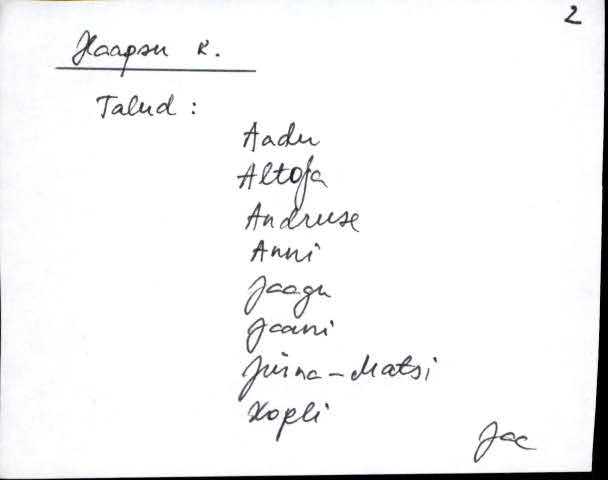 2
Haapsu k.
Talud :
Aadu
Altoja
Andruse
Anni
Jaagu
Jaani
Jürna-Matsi
Kopli